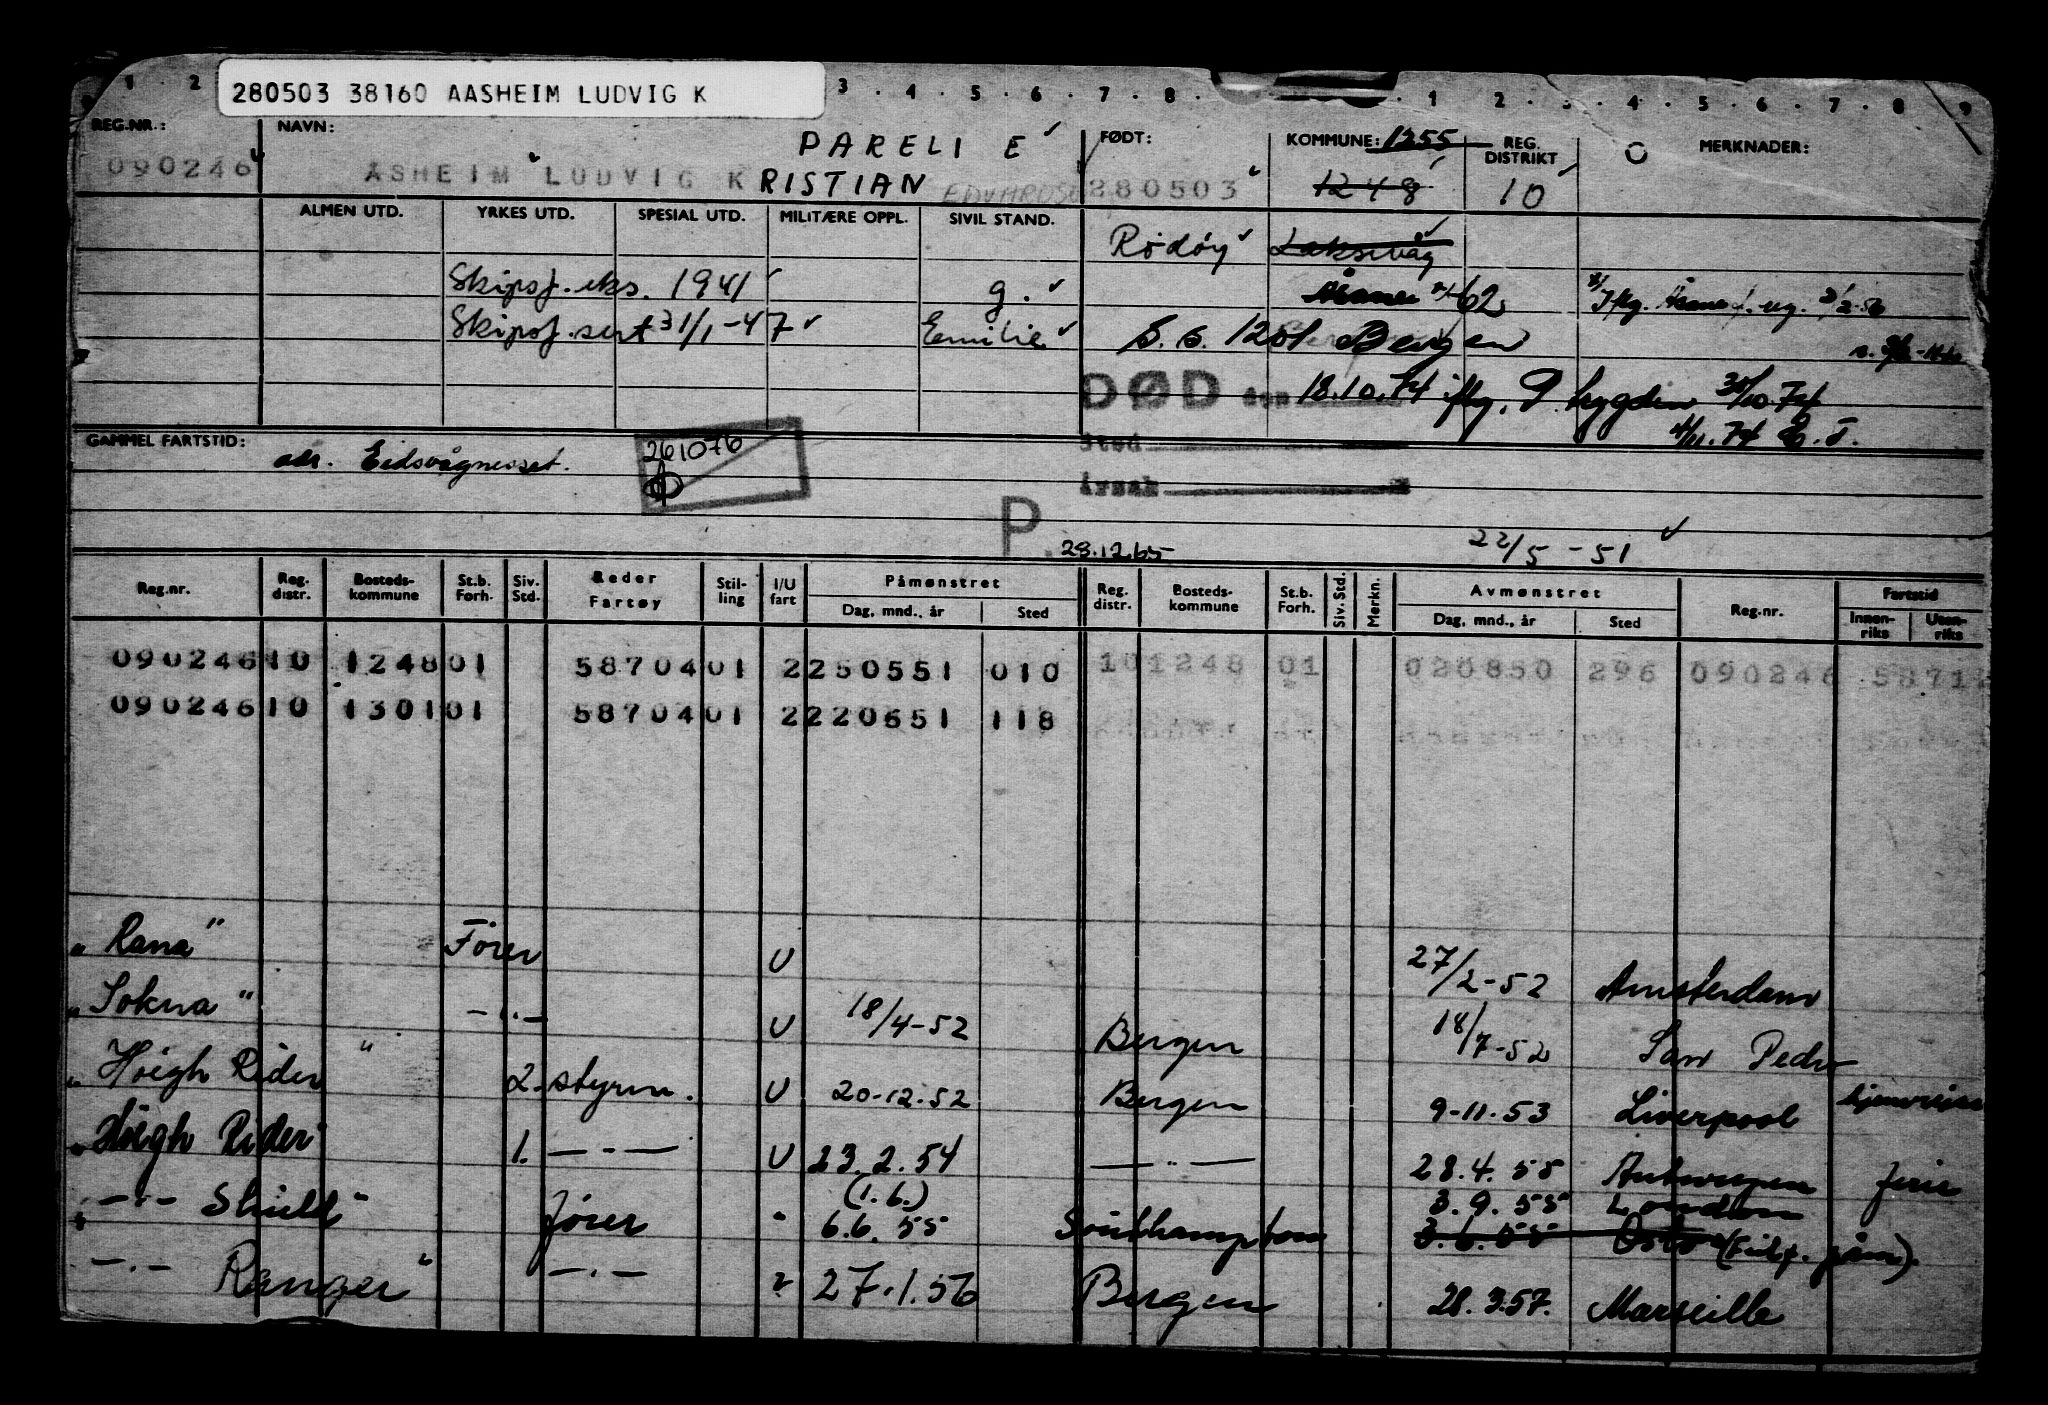 280503 38160 AASHEIM LUDVIG K
1 2 3 4 5 6 7 8 1 2 3 4 5 6 7 8 9
REG.NR.: NAVN: PARELI E FØDT: KOMMUNE: 1255 REG. DISTRIKT O MERKNADER:
090246 ÅSHEIM LUDVIG KRISTIAN 280503 1248 10
ALMEN UTD. YRKES UTD. SPESIAL UTD. MILITÆRE OPPL. SIVIL STAND.
Rødøy Laksevåg
Skipsf. eks. 1941 g. Åsane 62
Skipsf. sert 31/1-47 Emilie 1201 Bergen
DØD den 18.10.74 flg. P. trygden 30/10.74
4/11.74 E.T.
GAMMEL FARTSTID: adr. Eidsvågnesset. 261076 Sted
Årsak
P. 28.12.65 22/5-51
Reg.nr. Reg. distr. Bosteds-kommune St.b. Forh. Siv. Std. Reder Fartøy Stil-ling I/U fart Påmønstret Dag, mnd., år Sted Reg. distr. Bosteds-kommune St.b. Forh. Siv. Std. Merkn. Avmønstret Dag, mnd., år Sted Reg.nr. Fartstid Innen-riks Uten-riks
090246 10 1248 01 58704 01 2 250551 010 10 1248 01 020850 296 090246 5871
090246 10 1301 01 58704 01 2 220651 118
"Rana" Fører U 27/2-52 Amsterdam
"Sokna" -"- U 18/4-52 Bergen 18/7-52 San Pedro
"Höegh Rider" 2. styrm. U 20-12-52 Bergen 9-11-53 Liverpool hjemreise
"Höegh Rider" 1. -"- U 23.2.54 -"- 28.4.55 Antwerpen ferie
(1.6.) 3.9.55 London
"-"- Shield" fører " 6.6.55 Southampton 3.6.55 Oslo
-"- Ranger" -"- " 27.1.56 Bergen 28.3.57. Marseille